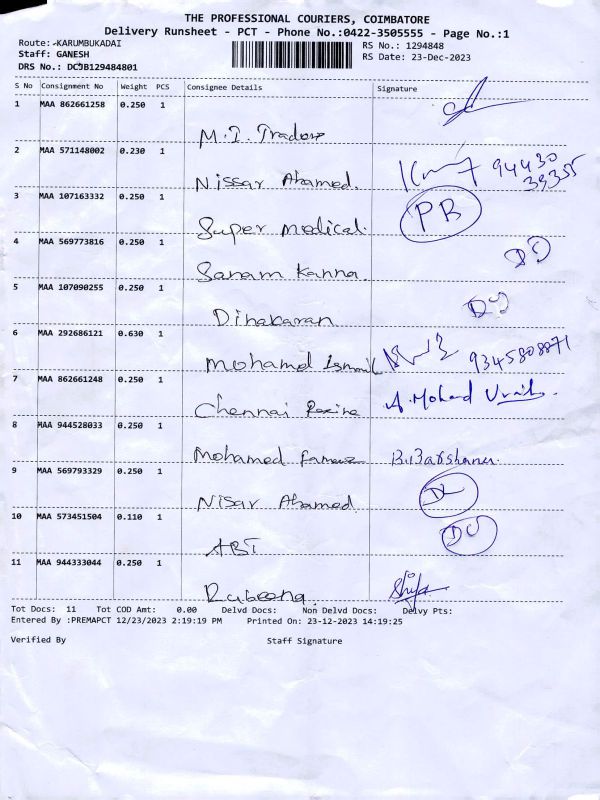 THE PROFESSIONAL COURIERS, COIMBATORE
Delivery Runsheet - PCT - Phone No.:0422-3505555 - Page No.:1
Route: -KARUMBUKADAI
RS No.: 1294848
Staff: GANESH
RS Date: 23-Dec-2023
DRS No.: DCJB129484801
S No Consignment No Weight PCS Consignee Details Signature
1 MAA 862661258 0.250 1
M.I. Traders
2 MAA 571148002 0.230 1
Nissar Ahamed. 94430
39355
3 MAA 107163332 0.250 1
Super medical. PB
4 MAA 569773816 0.250 1
Sanam Kanna.
5 MAA 107090255 0.250 1
Dinakaran
6 MAA 292686121 0.630 1
Mohamed Ismail 9345808871
7 MAA 862661248 0.250 1
Chennai A. Mohamd
8 MAA 944528033 0.250 1
Mohamed B.Barshana
9 MAA 569793329 0.250 1
Nisar Ahamed
10 MAA 573451504 0.110 1
ABT
11 MAA 944333044 0.250 1
Rubeena. Shifa
Tot Docs: 11 Tot COD Amt: 0.00 Delvd Docs: Non Delvd Docs: Delvy Pts:
Entered By :PREMAPCT 12/23/2023 2:19:19 PM Printed On: 23-12-2023 14:19:25
Verified By Staff Signature